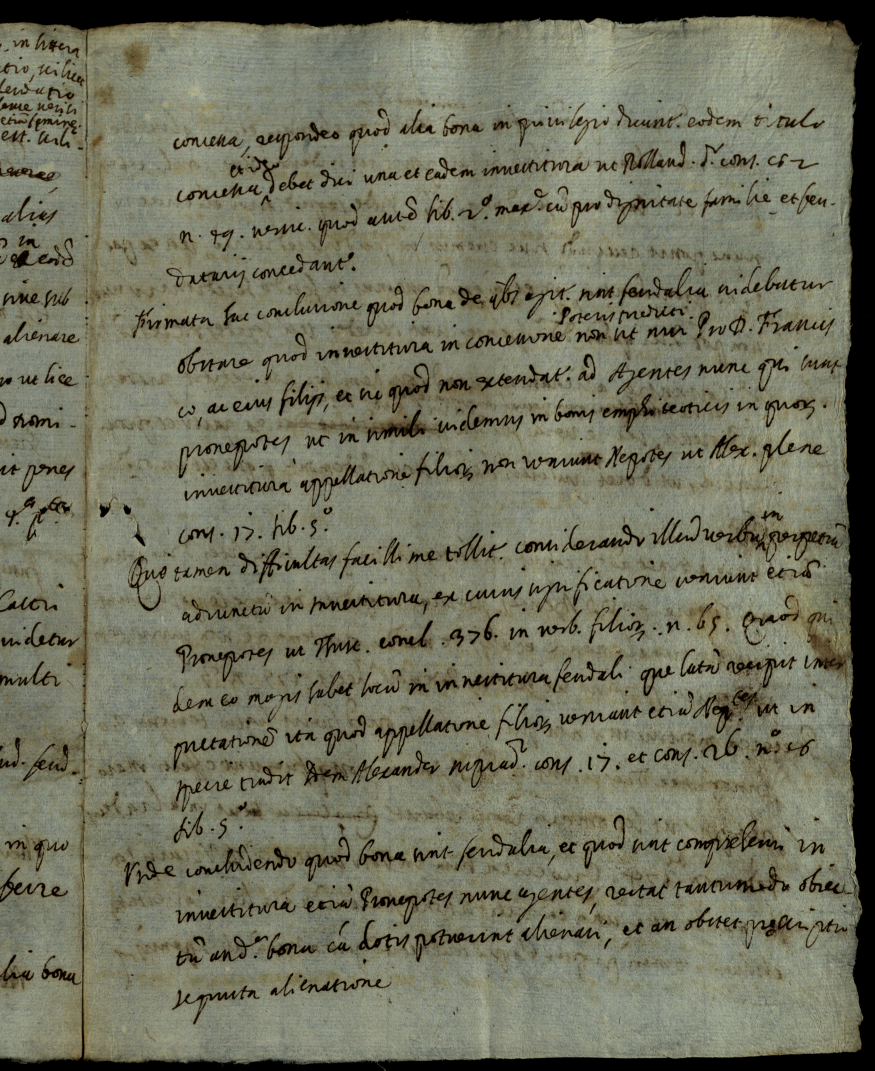 in littera
alias
sive sub
alienare
ut lice
nomi-
it penes
Castri
videtur
multi
feud.
in quo
alia bona
concessa, respondeo quod alia bona in privilegio dicunt. eodem titulo
et ideo
concessa debet dici una et eadem investitura ut Rolland. d. cons. 62
n. 19. versic. quod autẽ lib. 2.º max.e cũ pro dignitate familie et feu-
datarij concedant.
Firmata hac conclusione quod bona de qbs agit. sint feudalia videbatur
Poterit fundari
obstare quod investitura in concessione non sit nisi Pro D. Francis
co, ac eius filijs, et sic quod non extendat. ad Agentes nunc qui sunt
pronepotes ut in simili videmus in bonis emphiteoticis in quor.
investitura appellatione filior. non veniunt Nepotes ut Alex. plene
cons. 17. lib. 5.º
in
Quo tamen difficultas facillime tollit. considerando illud verbũ perpetuũ
adiunctũ in investitura, ex cuius significatione veniunt etiã
Pronepotes ut Thusc. concl. 376. in verb. filior. n. 65. Quod qui
dem eo magis habet locũ in investitura feudali que latã recipit inter
pretationẽ ita quod appellatione filior. veniant etiã Nepotes ut in
specie tradit Idem Alexander suprad.º cons. 17. et cons. 26. nº 16
lib. 5.º
Unde concludendo quod bona sint feudalia, et quod sint comprehensi in
investitura etiã Pronepotes nunc agentes, restat tantumodo obiec
tũ an d.a bona cã dotis potuerint alienari, et an obstet prescriptio
sequuta alienatione